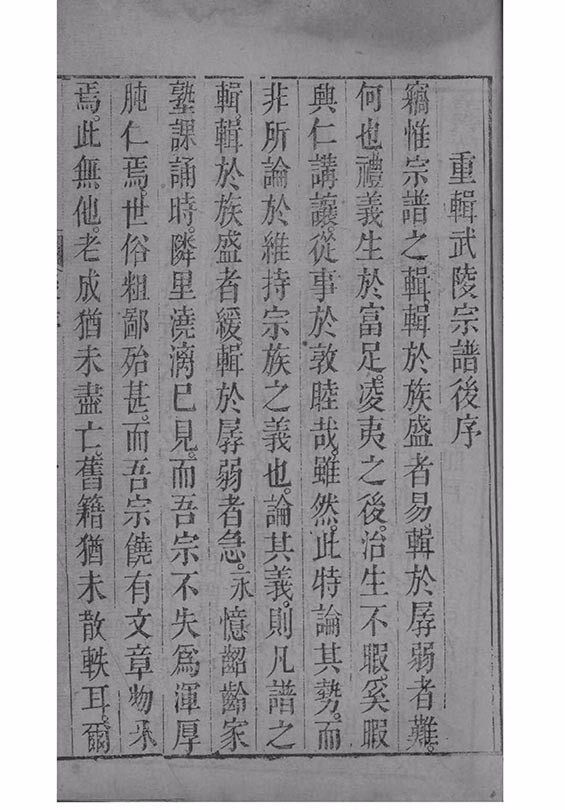 重輯武陵宗譜後序
竊惟宗譜之輯輯於族盛者易輯於孱弱者難。
何也禮義生於富足。凌夷之後。治生不暇。奚暇
興仁講讓。從事於敦睦哉。雖然。此特論其勢。而
非所論於維持宗族之義也。論其義。則凡譜之
輯。輯於族盛者緩輯於孱弱者急。永憶齠齡家
塾課誦時。隣里澆漓已見。而吾宗不失爲渾厚
肫仁焉。世俗粗鄙殆甚。而吾宗饒有文章物采
焉。此無他。老成猶未盡亡。舊籍猶未散軼耳。爾